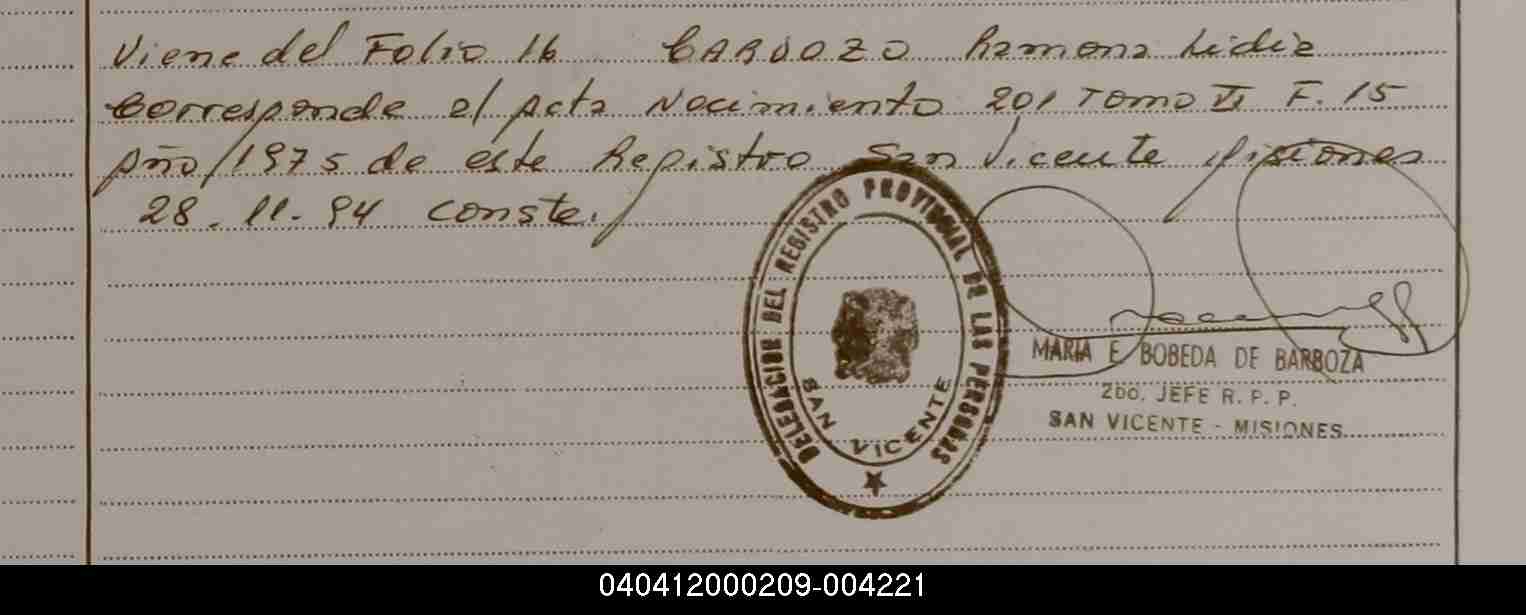 Viene del Folio 16 CARDOZO Ramona Lidia
Corresponde al Acta Nacimiento 201 Tomo VI F. 15
Año 1975 de este Registro San Vicente Misiones
28.11.94 Conste.
DELEGACION DEL REGISTRO PROVINCIAL DE LAS PERSONAS
SAN VICENTE
MARIA E BOBEDA DE BARBOZA
2DO. JEFE R. P. P.
SAN VICENTE - MISIONES
040412000209-004221